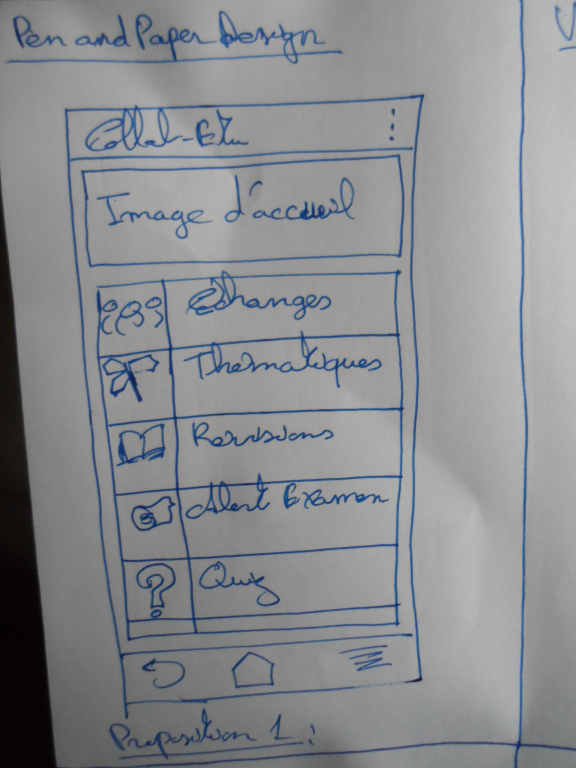 Pen and Paper Design
Collab-Etu
Image d'accueil
Echanges
Thématiques
Revisions
Alert Examen
Quiz
Proposition 1 :